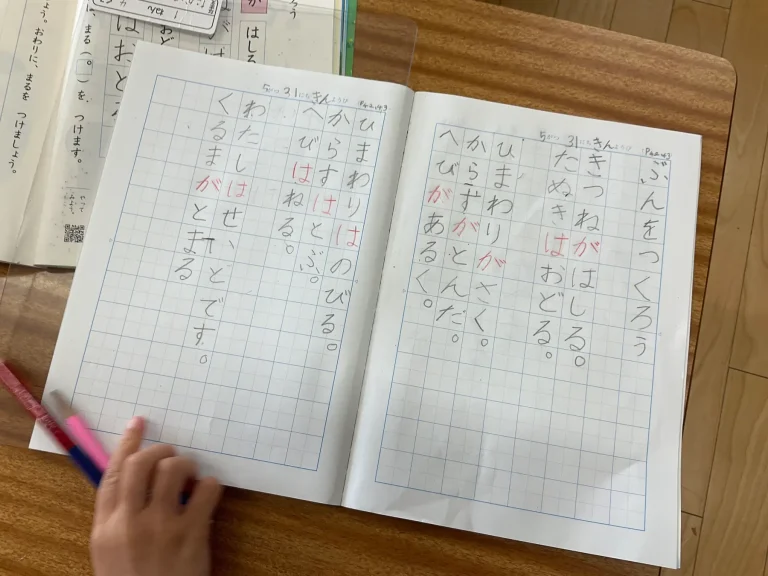 5がつ31にちきんようび
ぶんをつくろう
きつねがはしる。
たぬきはおどる。
ひまわりがさく。
からすがとんだ。
へびがあるく。
5がつ31にちきんようび
ひまわりはのびる。
からすはとぶ。
へびはねる。
わたしはせいとです。
くるまがとまる
はしろ
はおと
まる(。)を、つけます。
よう。おわりに、まるを つけましょう。